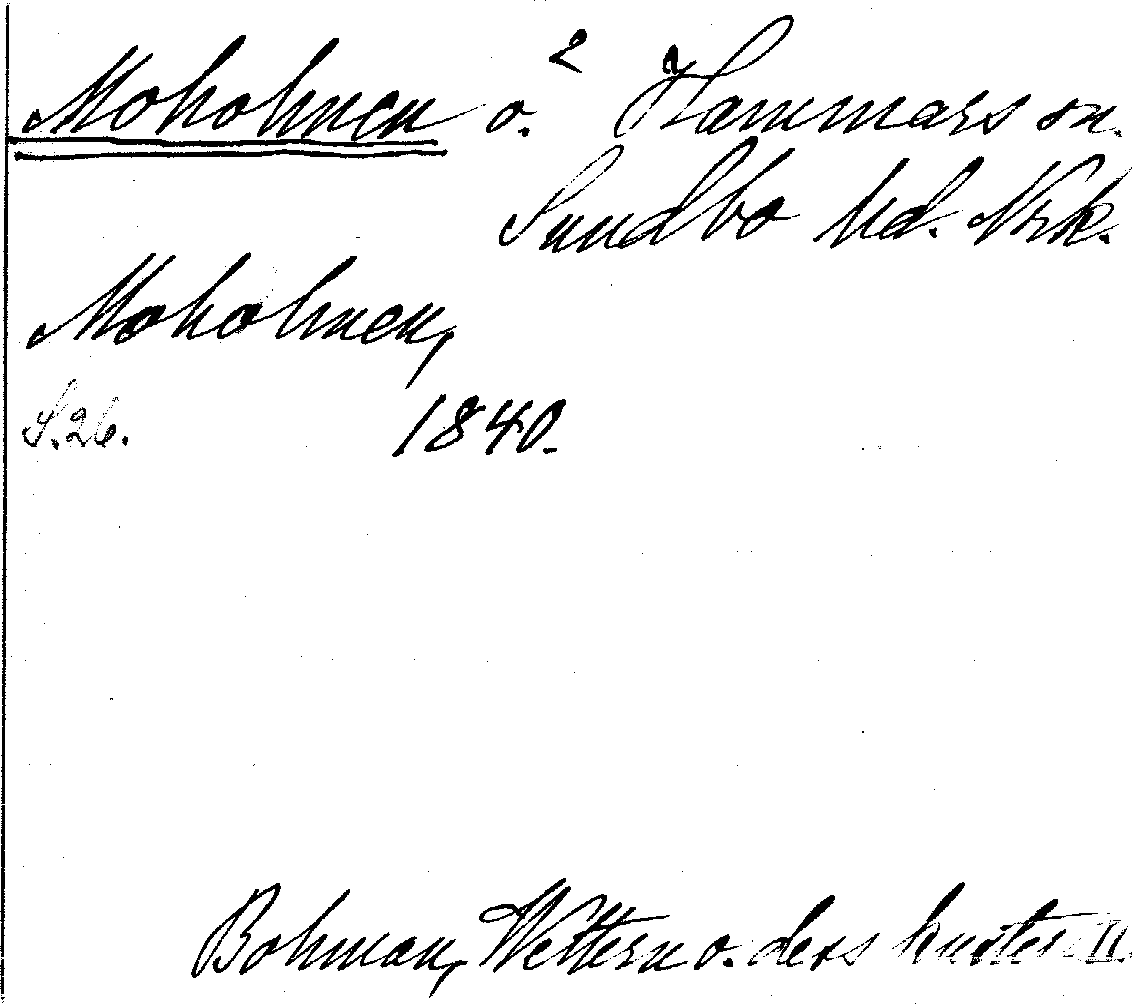 Moholmen o.² Hammars sn.
Sundbo hd. Nrk.
Moholmen,
S. 26. 1840.
Bohman, Wettern o. dess kuster II.